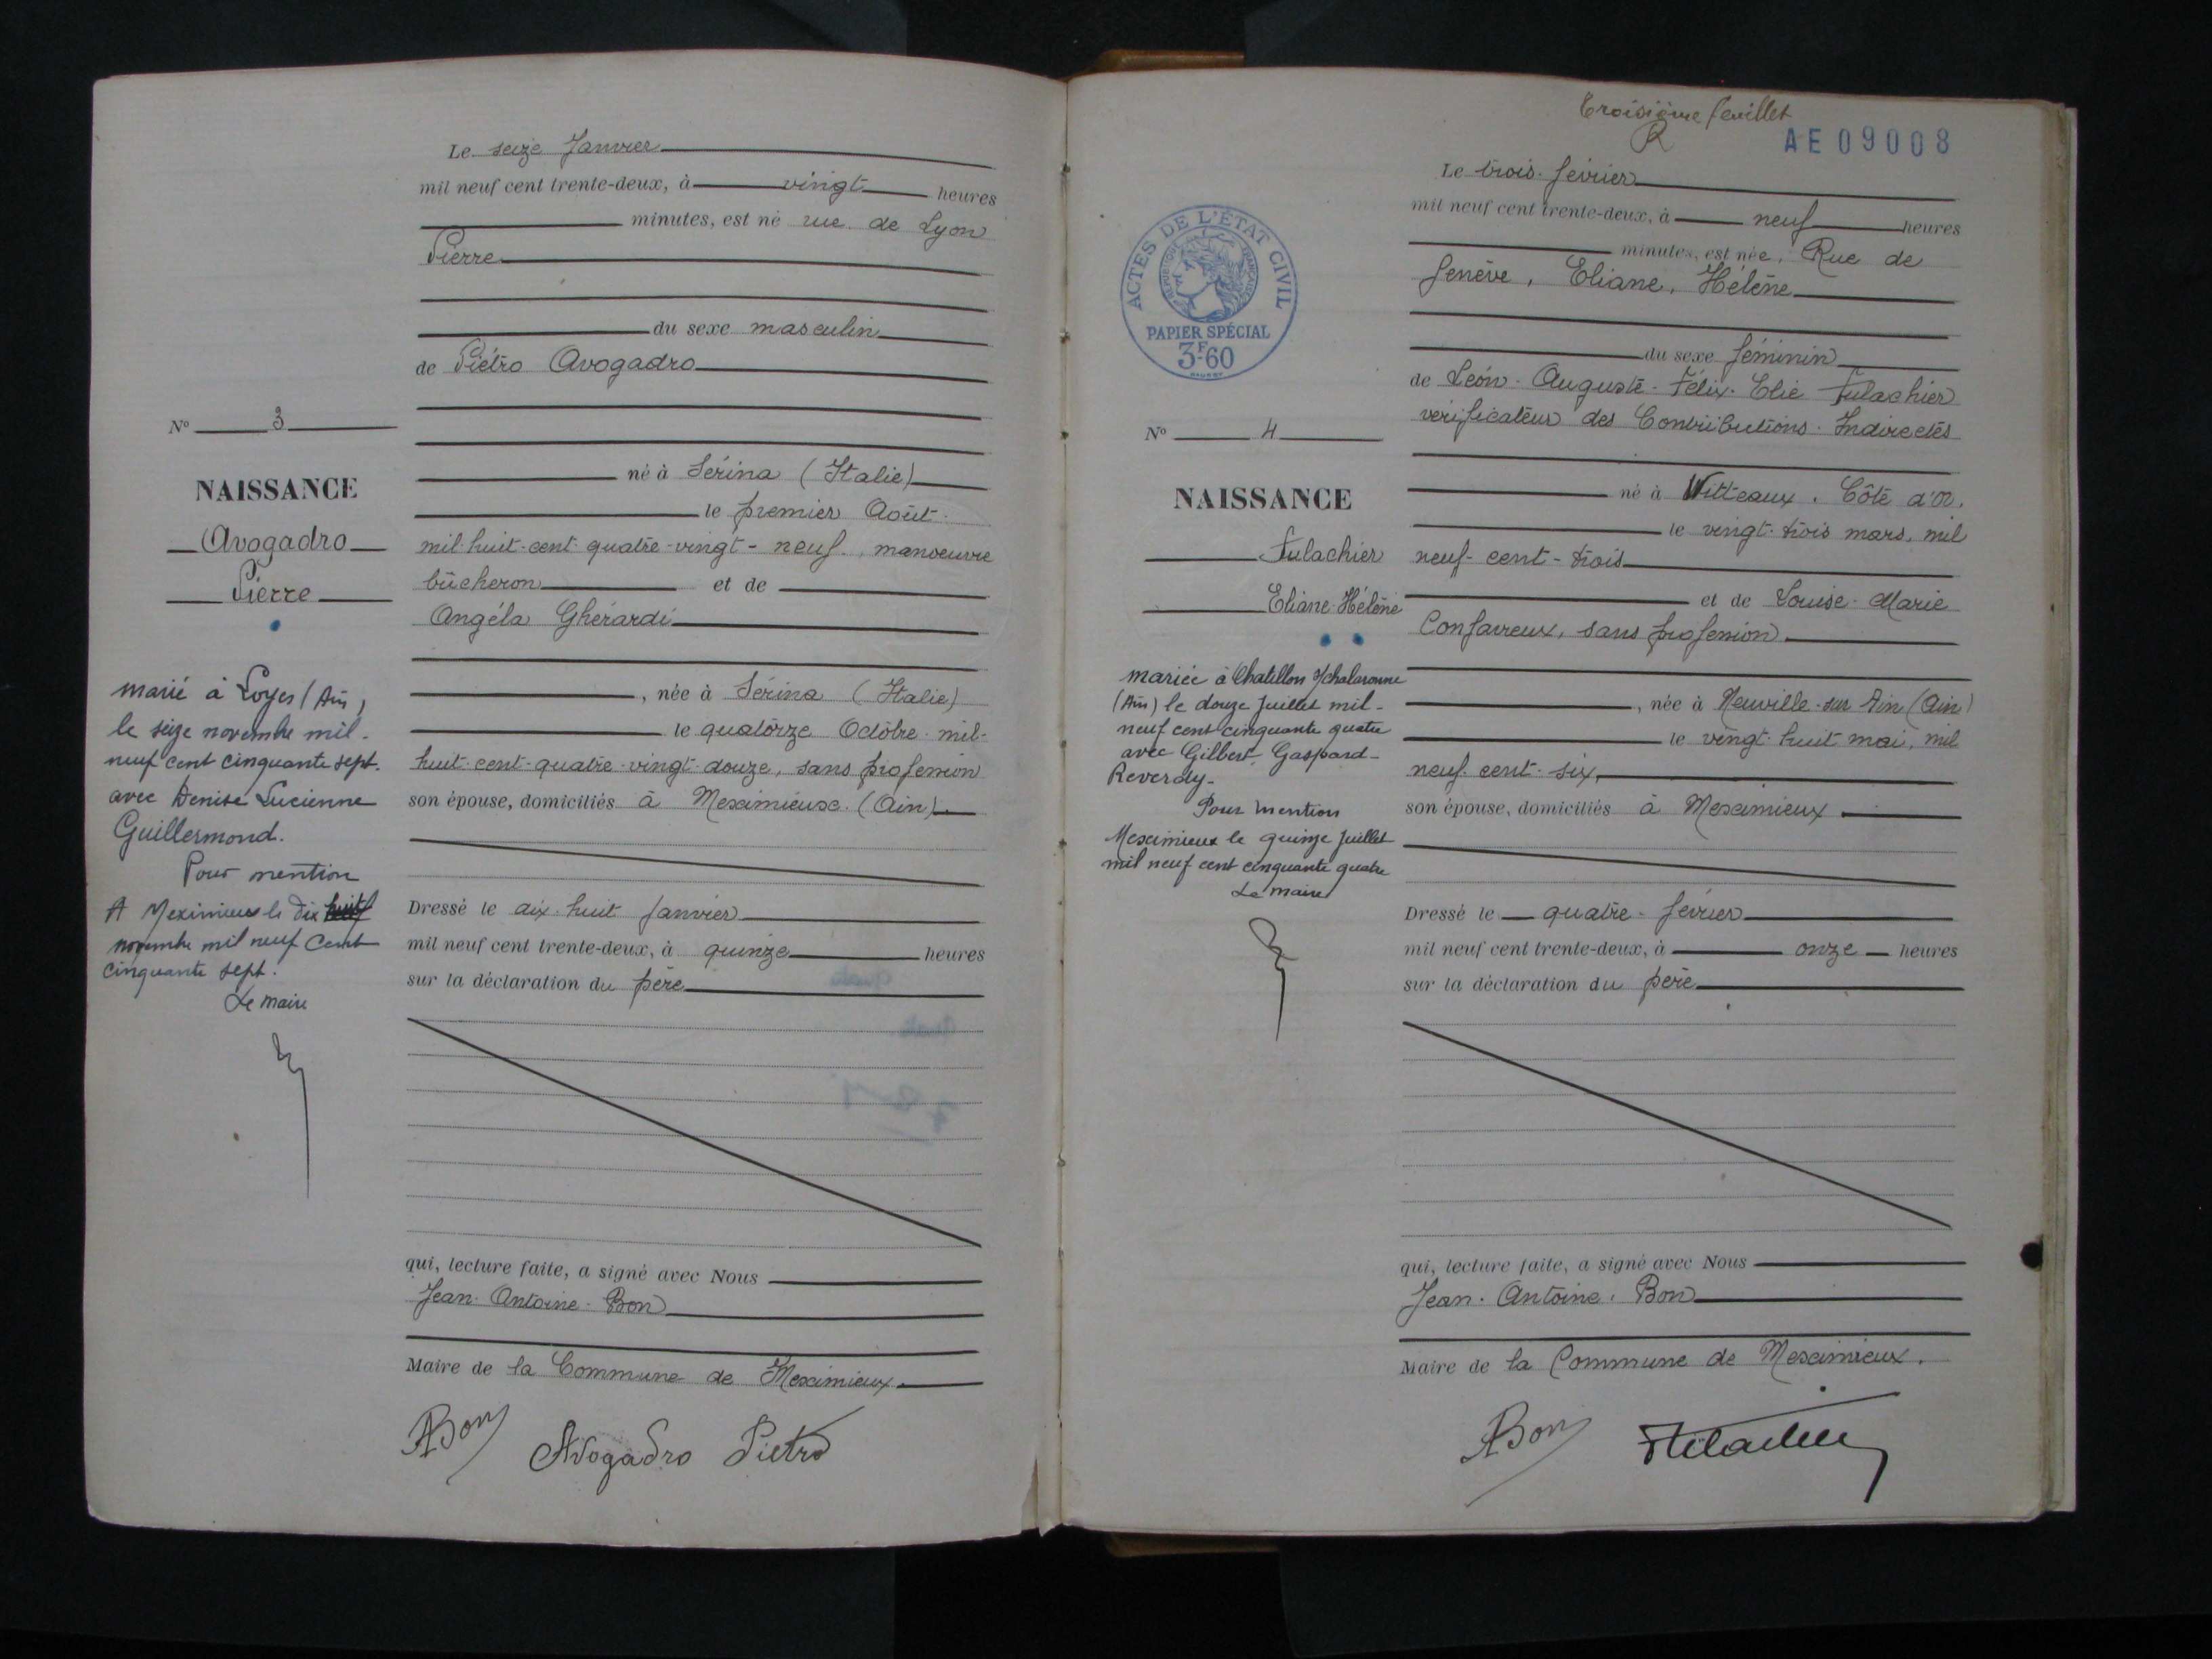 Le seize Janvier
mil neuf cent trente-deux, à vingt heures
minutes, est né rue de Lyon
Pierre
du sexe masculin
de Piétro Avogadro
né à Sérina (Italie)
le premier Août
mil-huit-cent-quatre-vingt-neuf, manoeuvre
bûcheron et de
Angéla Ghérardi
, née à Sérina (Italie)
le quatorze Octobre mil-
huit-cent-quatre-vingt-douze, sans profession
son épouse, domiciliés à Meximieux (Ain)
Dressé le dix-huit Janvier
mil neuf cent trente-deux, à quinze heures
sur la déclaration du père
qui, lecture faite, a signé avec Nous
Jean-Antoine-Bon
Maire de la Commune de Meximieux
ABon Avogadro Pietro
N° 3
NAISSANCE
Avogadro
Pierre
marié à Loyes (Ain)
le seize novembre mil-
neuf cent cinquante sept.
avec Denise Lucienne
Guillermond.
Pour mention
A Meximieux le dix huit
novembre mil neuf cent
cinquante sept.
Le maire
Troisième feuillet
AE 09008
Le trois février
mil neuf cent trente-deux, à neuf heures
minutes, est née, Rue de
Genève, Eliane, Hélène
du sexe féminin
de Léon-Auguste-Félix-Elie Fulachier
vérificateur des Contributions Indirectes
né à Vitteaux, Côte d'or,
le vingt-trois mars, mil
neuf-cent-trois
et de Louise-Marie
Confavreux, sans profession
, née à Neuville-sur Ain (Ain)
le vingt-huit mai, mil
neuf-cent-six,
son épouse, domiciliés à Meximieux
Dressé le quatre-février
mil neuf cent trente-deux, à onze heures
sur la déclaration du père
qui, lecture faite, a signé avec Nous
Jean-Antoine, Bon
Maire de la Commune de Meximieux.
ABon
ACTES DE L'ÉTAT CIVIL
RÉPUBLIQUE FRANÇAISE
PAPIER SPÉCIAL
3F60
N° 4
NAISSANCE
Fulachier
Eliane-Hélène
mariée à Chatillon s/chalaronne
(Ain) le douze juillet mil-
neuf cent cinquante quatre
avec Gilbert Gaspard-
Reverdy-
Pour mention
Meximieux le quinze juillet
mil neuf cent cinquante quatre
Le maire